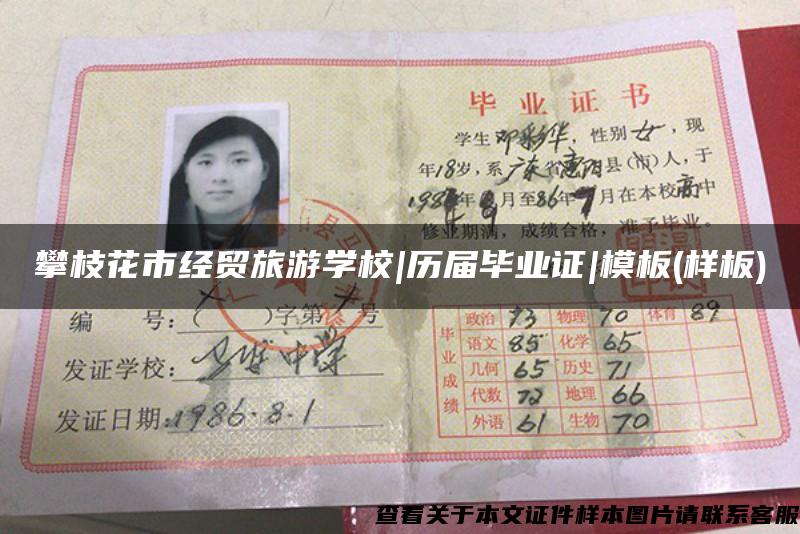 毕业证书
学生邓彩华，性别女，现
年18岁，系广东省惠阳县(市)人，于
月至86年7月在本校高中
修业期满，成绩合格，准予毕业。
攀枝花市经贸旅游学校|历届毕业证|模板(样板)
编 号：( )字第 号
发证学校：马安中学
发证日期：1986.8.1
毕业成绩
政治 73 物理 70 体育 89
语文 85 化学 65
几何 65 历史 71
代数 72 地理 66
外语 61 生物 70
查看关于本文证件样本图片请联系客服